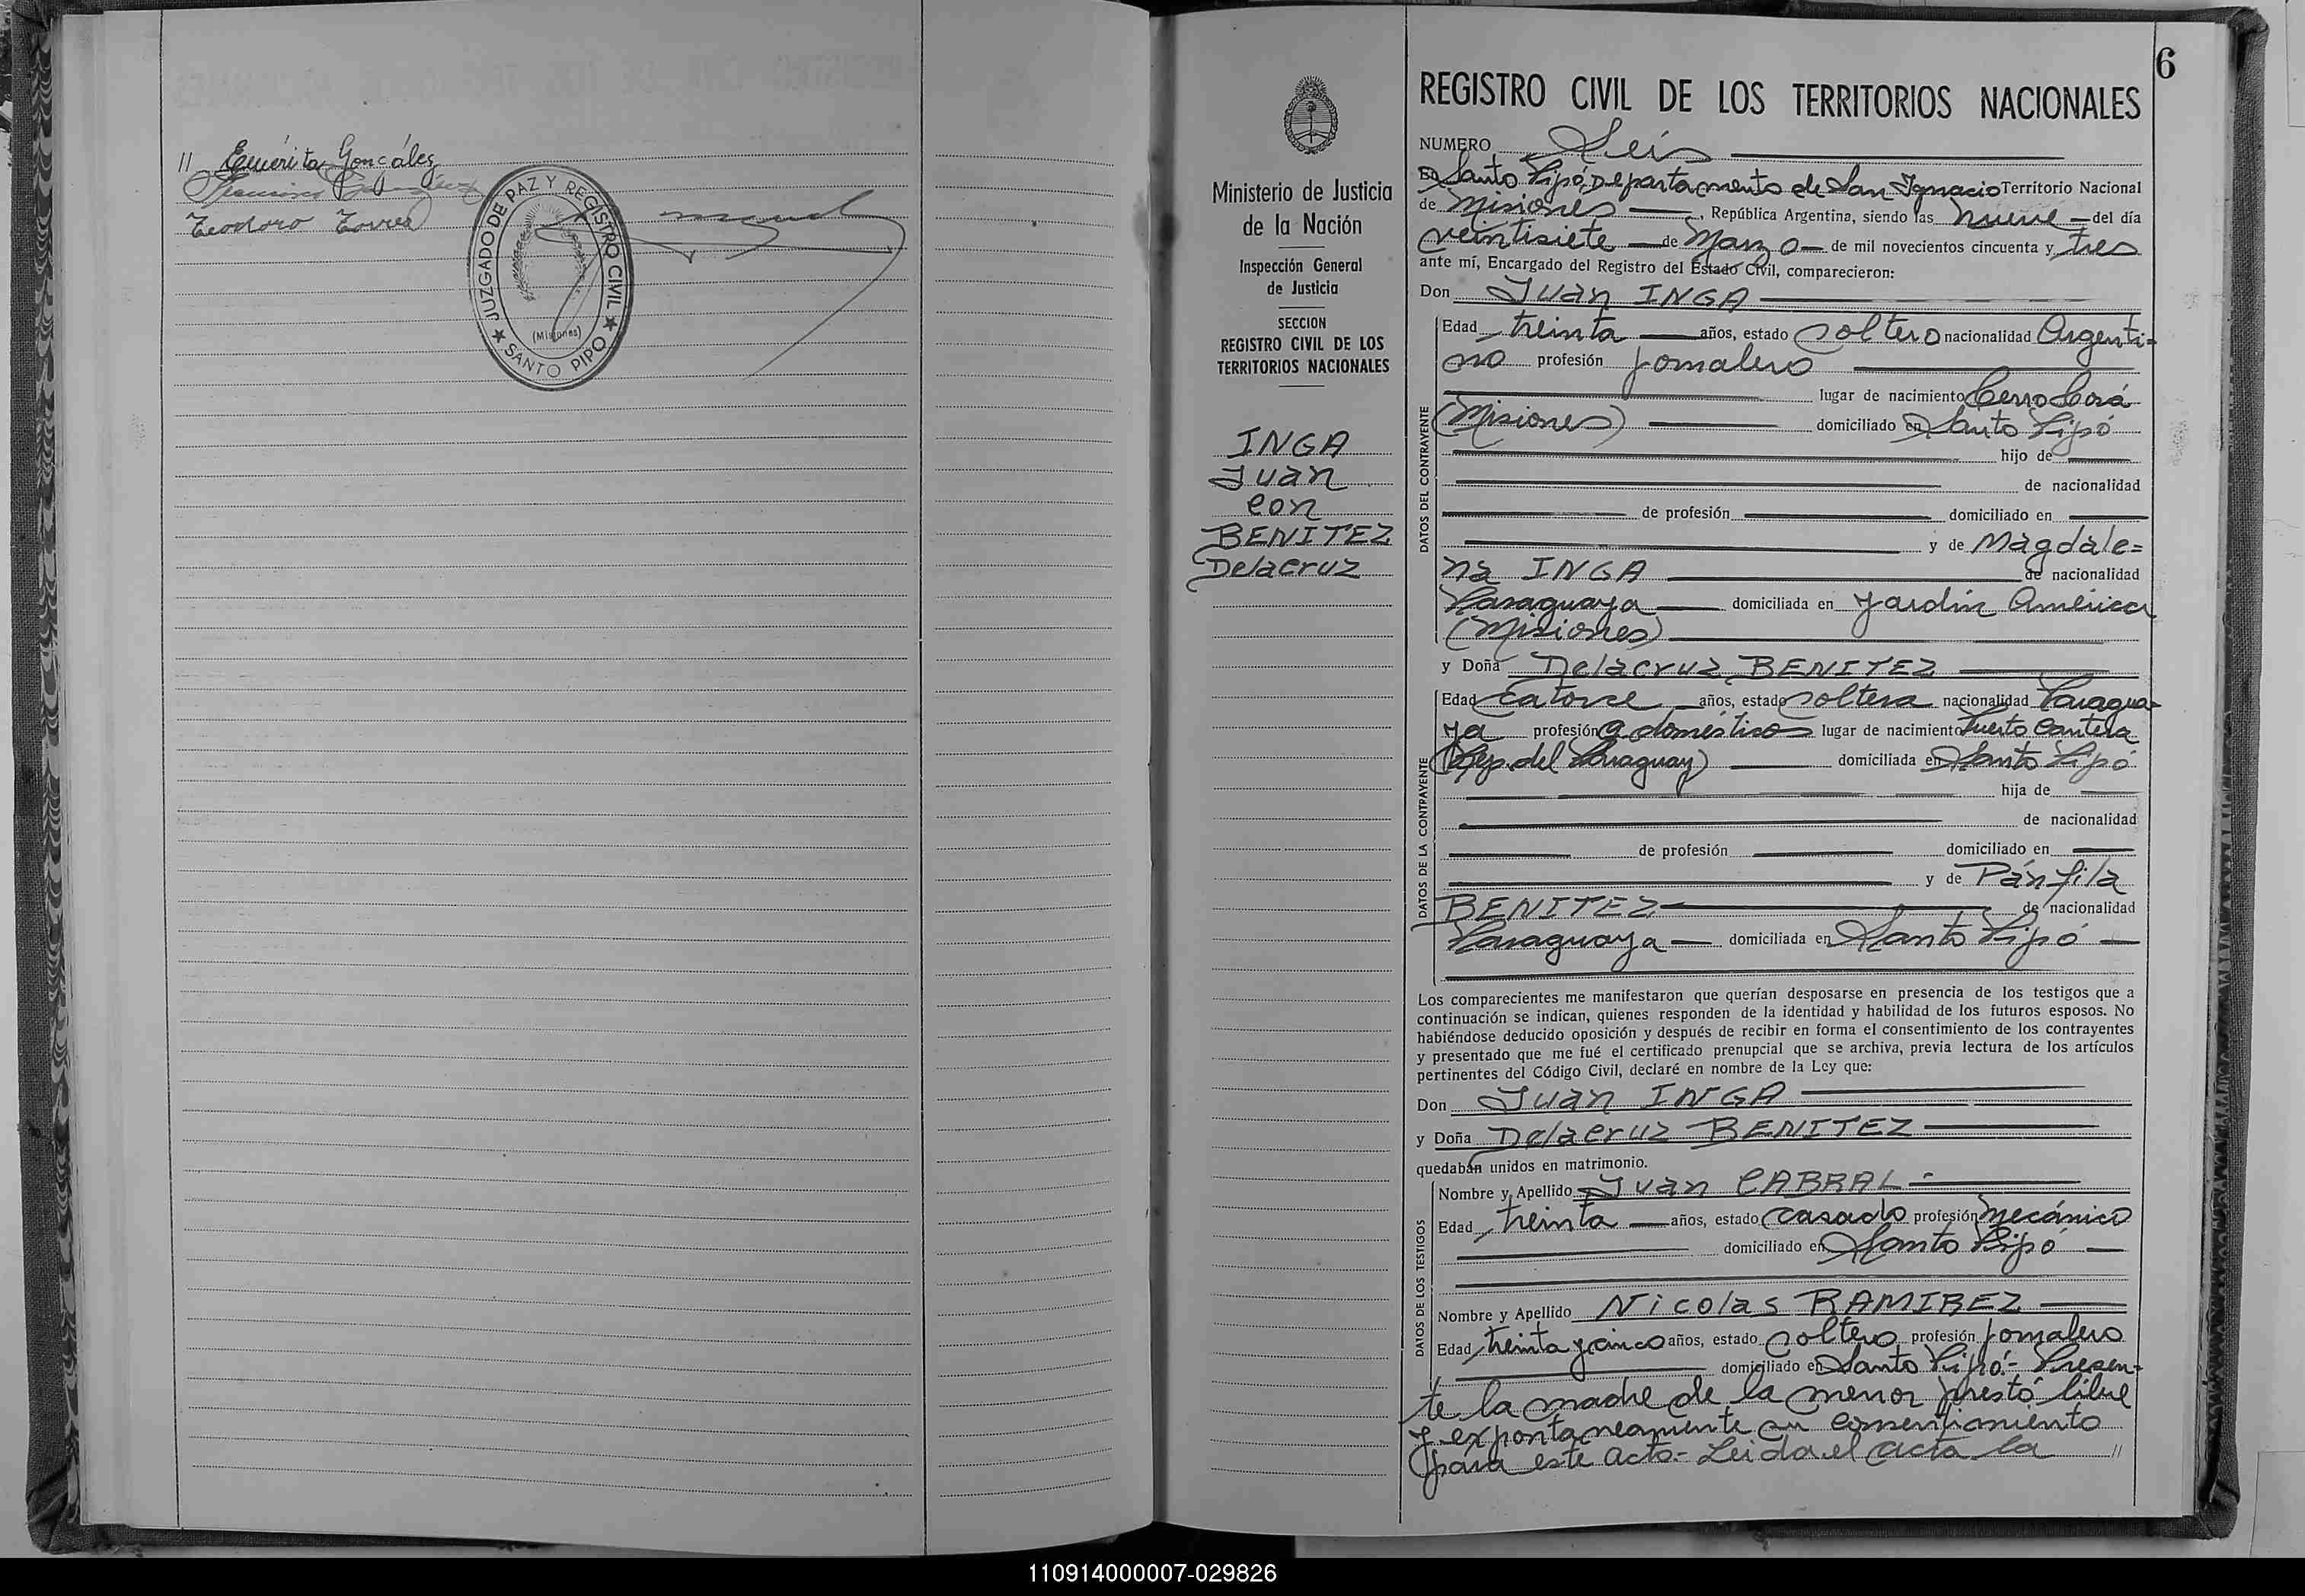 // Emérita Gonzáles
Teodoro Torres
★ JUZGADO DE PAZ Y REGISTRO CIVIL ★
(Misiones)
SANTO PIPO
6
Ministerio de Justicia
de la Nación
Inspección General
de Justicia
SECCION
REGISTRO CIVIL DE LOS
TERRITORIOS NACIONALES
INGA
Juan
con
BENITEZ
Delacruz
REGISTRO CIVIL DE LOS TERRITORIOS NACIONALES
NUMERO Seis
En Santo Pipó, Departamento de San Ignacio Territorio Nacional
de Misiones, República Argentina, siendo las nueve del día
veintisiete de Marzo de mil novecientos cincuenta y tres
ante mí, Encargado del Registro del Estado Civil, comparecieron:
Don Juan INGA
DATOS DEL CONTRAYENTE
Edad treinta años, estado soltero nacionalidad Argenti=
no profesión jornalero
lugar de nacimiento Cerro Corá
(Misiones) domiciliado en Santo Pipó
hijo de
de nacionalidad
de profesión domiciliado en
y de Magdale=
na INGA de nacionalidad
Paraguaya domiciliada en Jardín América
(Misiones)
y Doña Delacruz BENITEZ
DATOS DE LA CONTRAYENTE
Edad catorce años, estado soltera nacionalidad Paragua=
ya profesión q. domésticos lugar de nacimiento Puerto Cantera
(Rep. del Paraguay) domiciliada en Santo Pipó
hija de
de nacionalidad
de profesión domiciliado en
y de Pánfila
BENITEZ de nacionalidad
Paraguaya domiciliada en Santo Pipó
Los comparecientes me manifestaron que querían desposarse en presencia de los testigos que a
continuación se indican, quienes responden de la identidad y habilidad de los futuros esposos. No
habiéndose deducido oposición y después de recibir en forma el consentimiento de los contrayentes
y presentado que me fué el certificado prenupcial que se archiva, previa lectura de los artículos
pertinentes del Código Civil, declaré en nombre de la Ley que:
Don Juan INGA
y Doña Delacruz BENITEZ
quedaban unidos en matrimonio.
DATOS DE LOS TESTIGOS
Nombre y Apellido Juan CABRAL
Edad treinta años, estado casado profesión mecánico
domiciliado en Santo Pipó
Nombre y Apellido Nicolas RAMIREZ
Edad treinta y cinco años, estado soltero profesión jornalero
domiciliado en Santo Pipó.- Presen-
te la madre de la menor prestó libre
y expontaneamente su consentimiento
para este acto.- Leida el acta la //
110914000007-029826